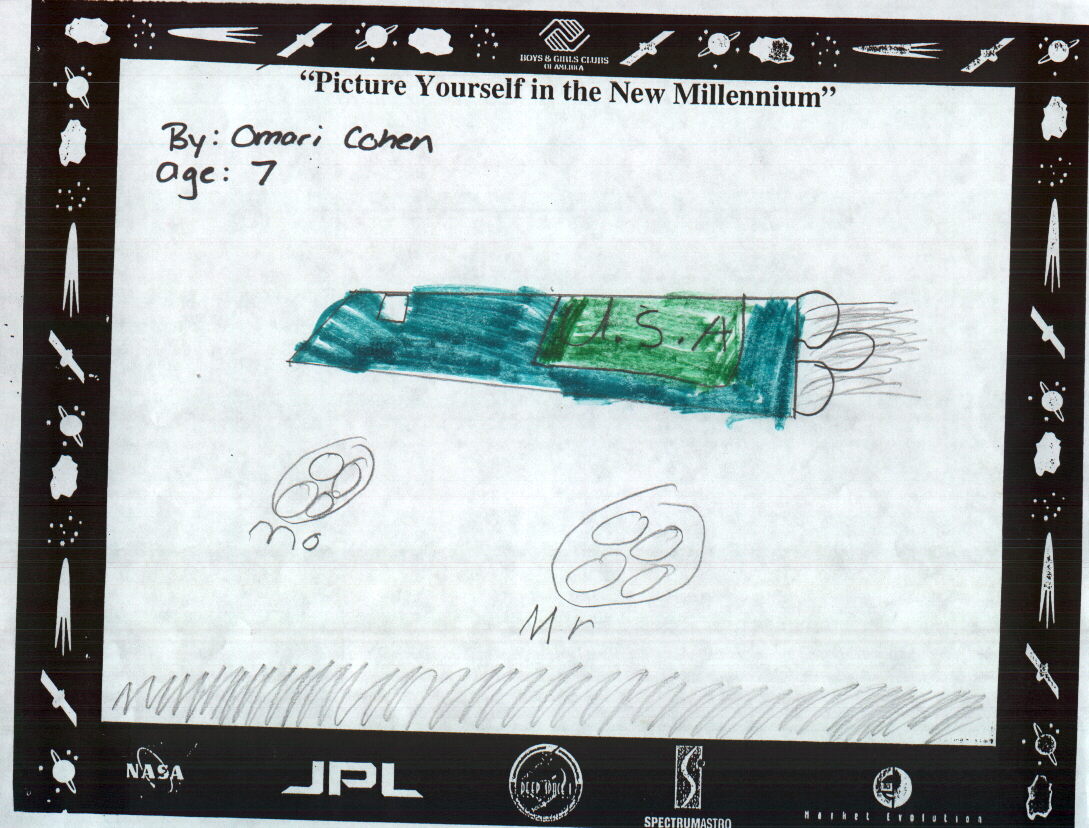 BOYS & GIRLS CLUBS
OF AMERICA
“Picture Yourself in the New Millennium”
By: Omari Cohen
age: 7
U.S.A
Mo
Mr
NASA
JPL
DEEP SPACE 1
SPECTRUMASTRO
Market Evolution